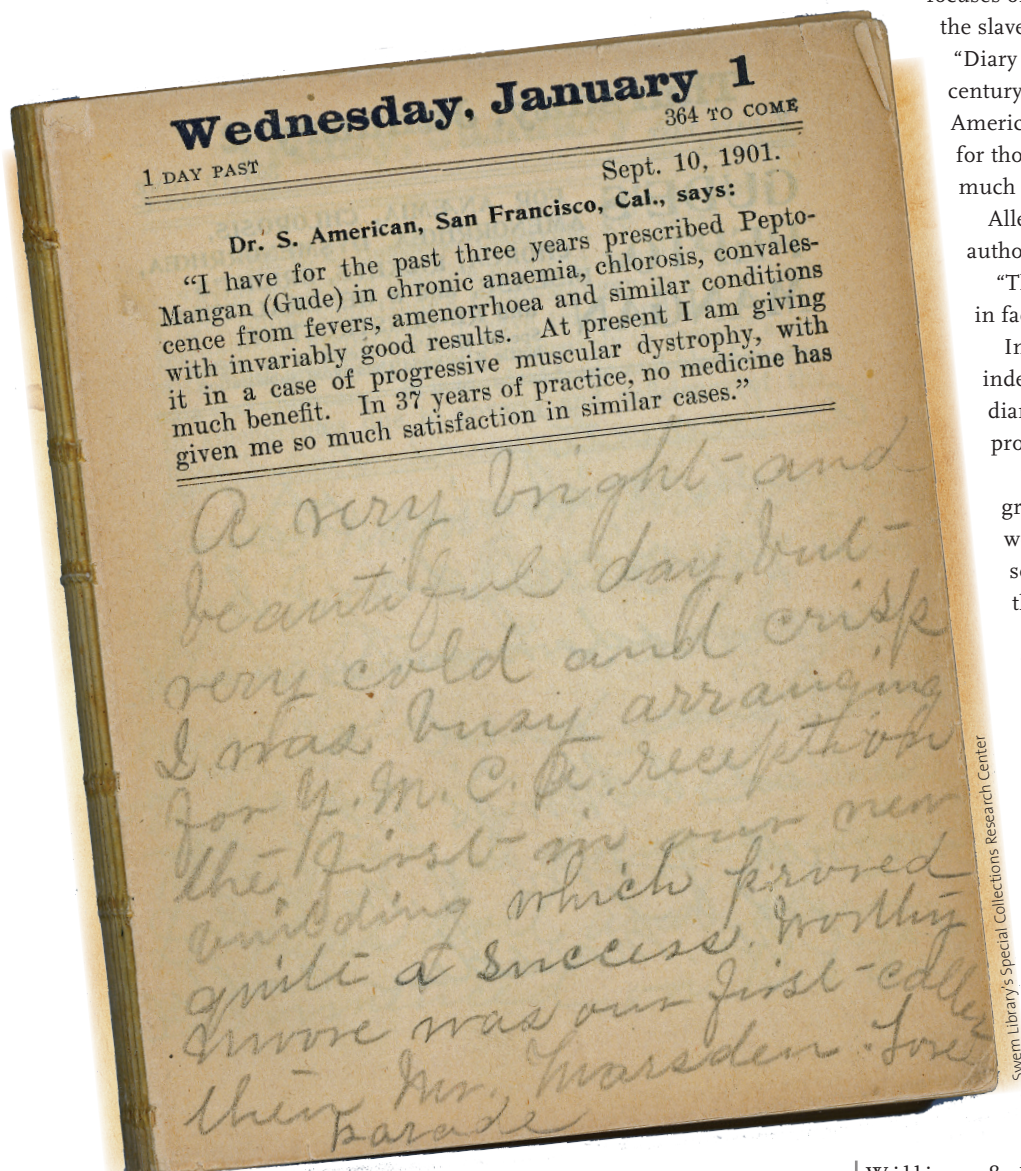 Wednesday, January 1
1 DAY PAST
364 TO COME
Sept. 10, 1901.
Dr. S. American, San Francisco, Cal., says:
“I have for the past three years prescribed Pepto-
Mangan (Gude) in chronic anaemia, chlorosis, convales-
cence from fevers, amenorrhoea and similar conditions
with invariably good results. At present I am giving
it in a case of progressive muscular dystrophy, with
much benefit. In 37 years of practice, no medicine has
given me so much satisfaction in similar cases.”
A very bright and
beautiful day, but
very cold and crisp
I was busy arranging
for Y.M.C.A. reception
the first in our new
building which proved
quite a success. Worthy
Moore was our first caller
then Mr. Marsden
parade
the slave
“Diary
century
Americ
for tho
much
Alle
autho
in fac
In
inde
diar
pro
gr
w
Swem Library's Special Collections Research Center